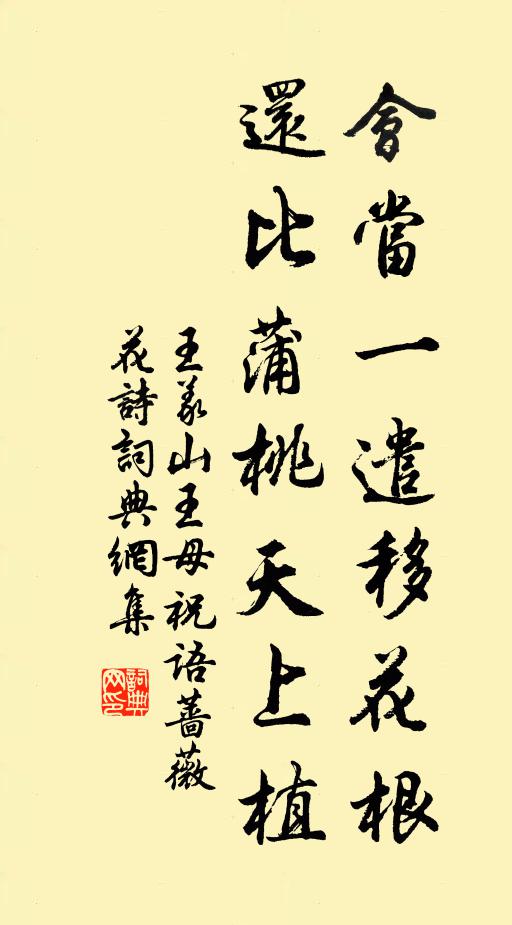 會當一遣移花根
還比蒲桃天上植
王義山王母祝语蔷薇
花詩詞典網集
詞典網印